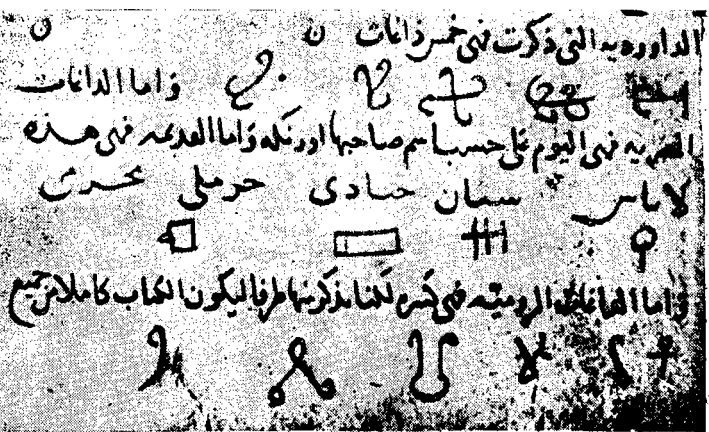 الداوديه التى ذكرت فهى خمس داغات
واما الداغات
المصريه فهى اليوم على حسب اسم صاحبها او رنكه واما القديمه فهى هذه
سنان حرملى
واما الداغات الروميه فهى كثيره لكننا نذكر منها طرفا ليكون الكتاب كاملا من جميع